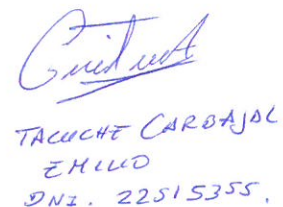 TACUCHE CARBAJAL
EMILIO
DNI. 22515355.